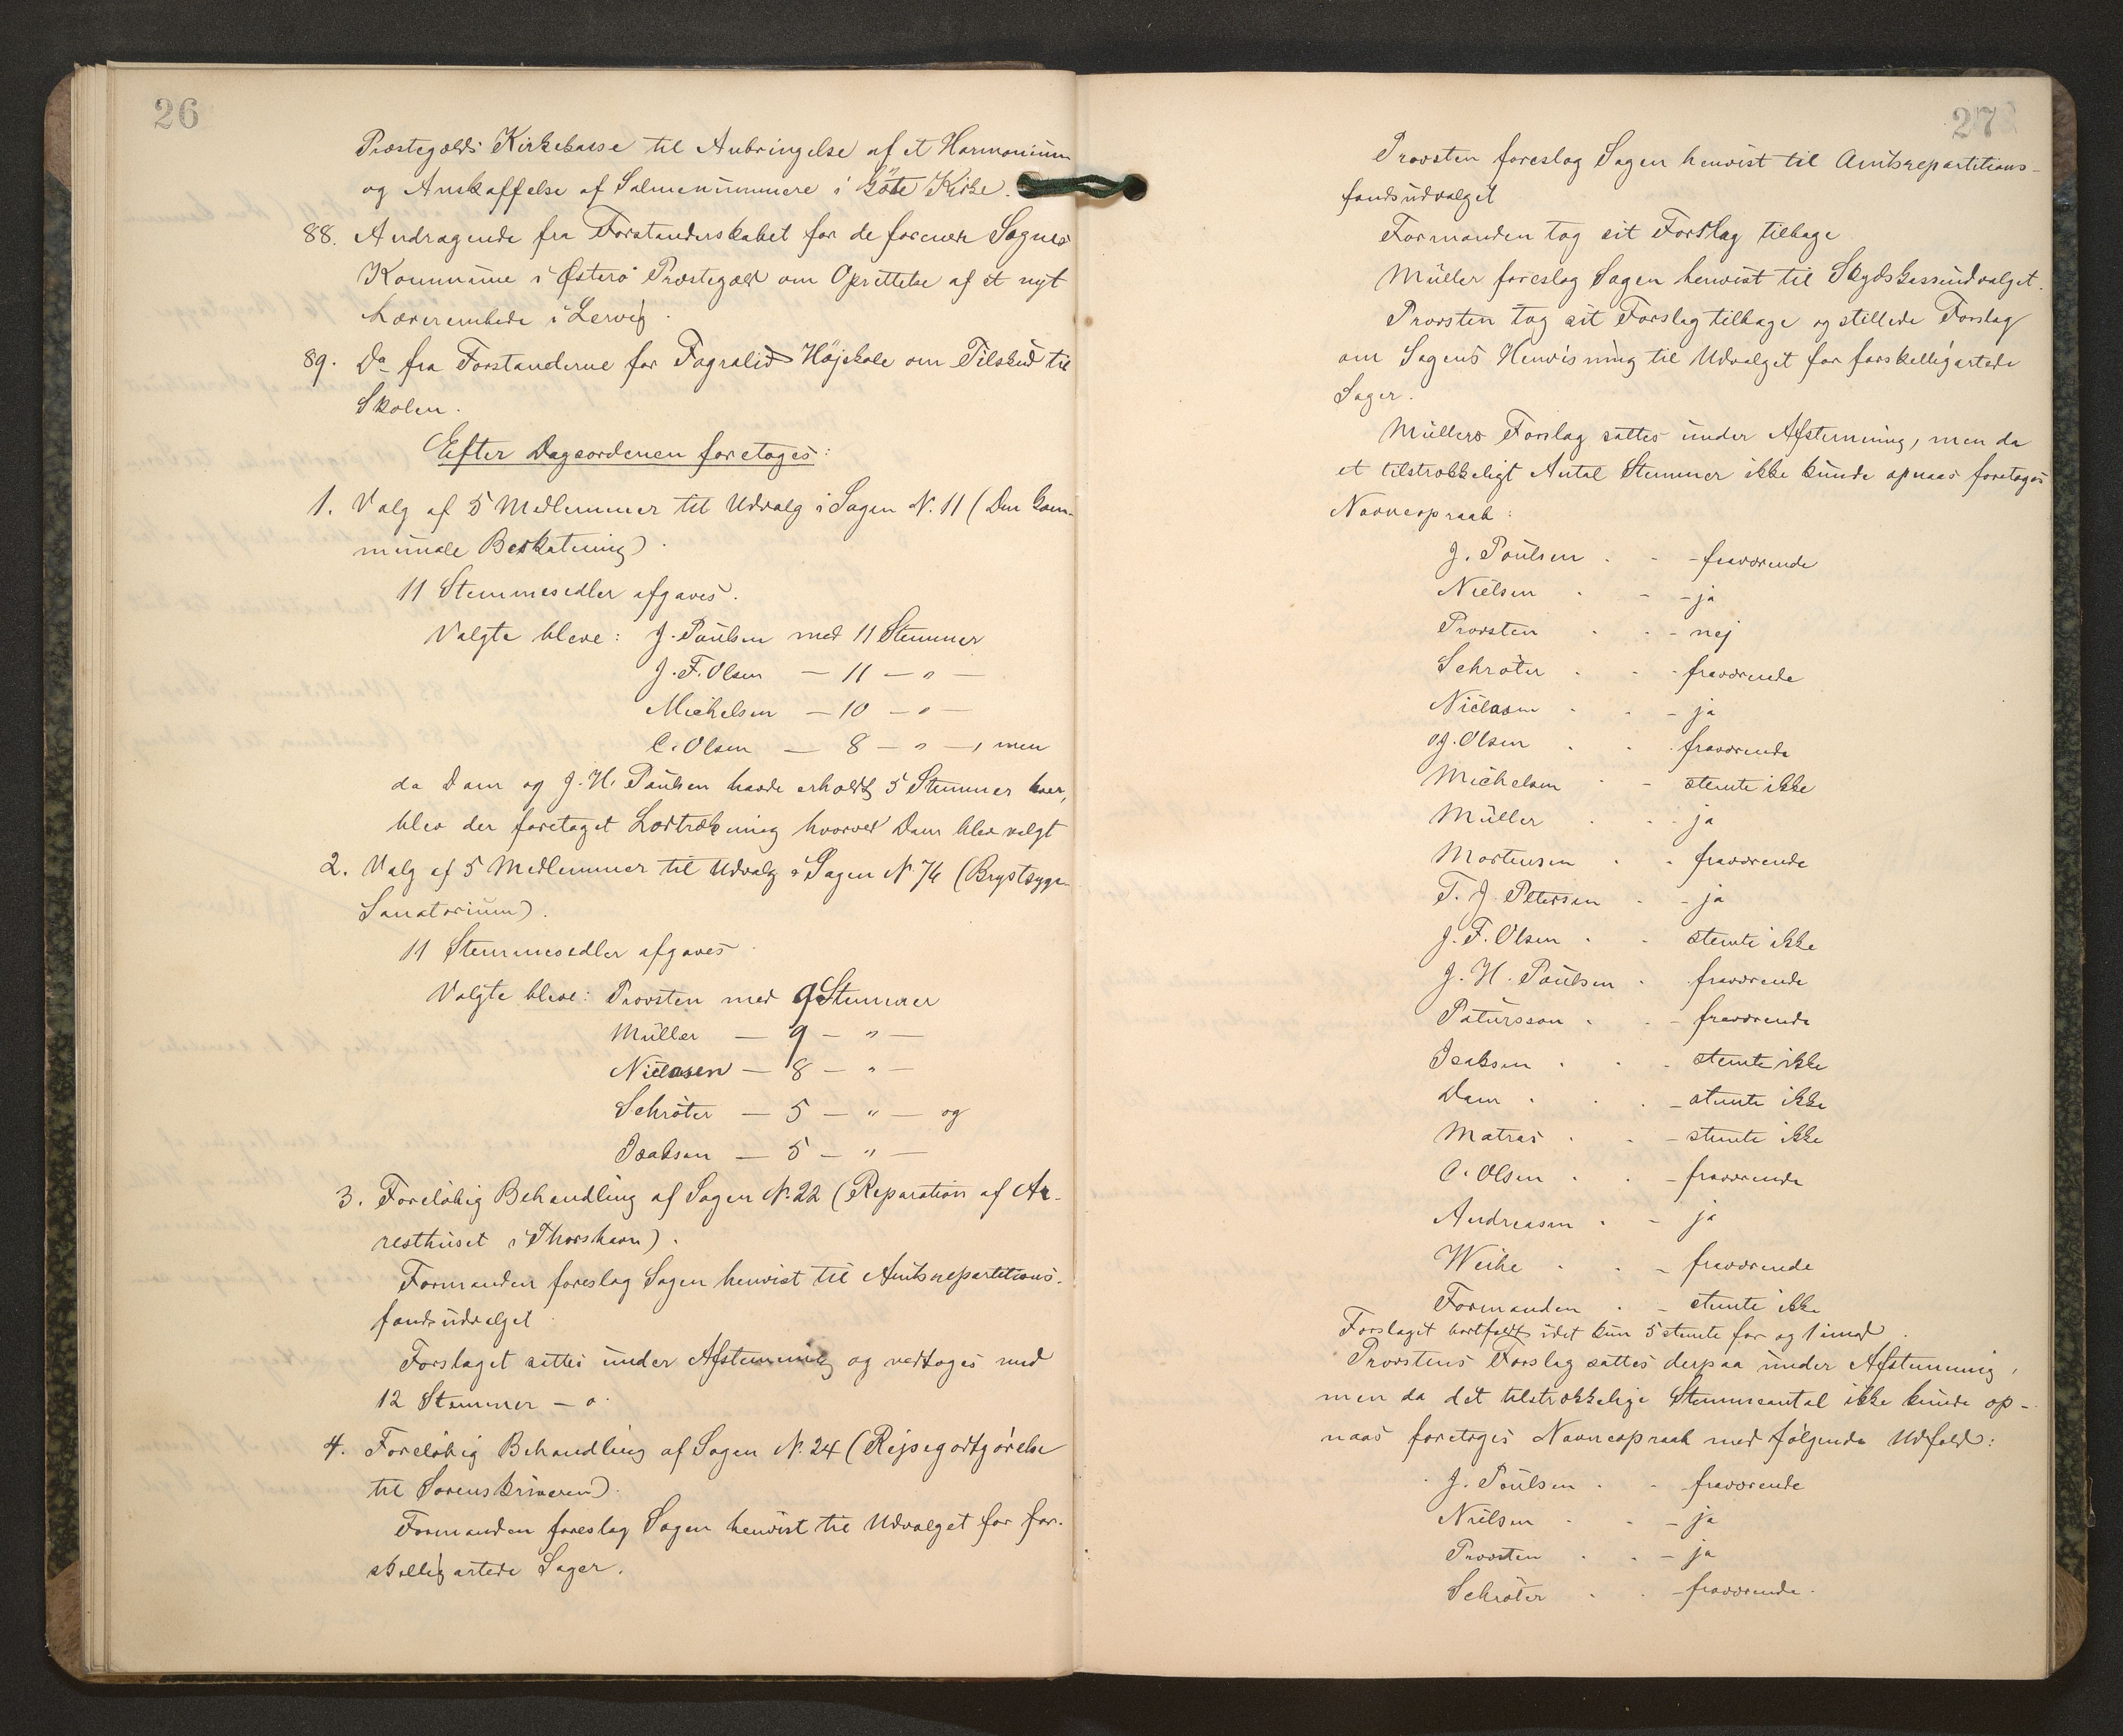 26
Præstegælds Kirkekasse til Anbringelse af et Harmonium
og Anskaffelse af Salmenummere i Göte Kirke.
88. Andragende fra Forstanderskabet for de forenede Sognes
Kommune i Østerö Præstegæld om Oprettelse af et nyt
Lærerembede i Lervig.
89. Do fra Forstanderne for Fagralid Højskole om Tilskud til
Skolen.
Efter Dagsordenen foretoges:
1. Valg af 5 Medlemmer til Udvalg i Sagen N. 11 (Den kom-
munale Beskatning).
11 Stemmesedler afgaves.
Valgte bleve: J. Poulsen med 11 Stemmer
J. F. Olsen — 11 — " —
Michelsen — 10 — " —
C. Olsen — 8 — " —, men
da Dam og J. H. Poulsen havde erholdt 5 Stemmer hver,
blev der foretaget Lodtrækning hvorved Dam blev valgt
2. Valg af 5 Medlemmer til Udvalg i Sagen N. 74 (Brystsyge-
Sanatorium).
11 Stemmesedler afgaves
Valgte bleve: Provsten med 9 Stemmer
Müller — 9 — " —
Niclasen — 8 — " —
Schröter — 5 — " — og
Isaksen — 5 — " —
3. Foreløbig Behandling af Sagen N. 22 (Reparation af Ar-
resthuset i Thorshavn).
Formanden foreslog Sagen henvist til Amtsrepartitions-
fondsudvalget
Forslaget sattes under Afstemning og vedtoges med
12 Stemmer — 0.
4. Foreløbig Behandling af Sagen N. 24 (Rejsegodtgørelse
til Sorenskriveren).
Formanden foreslog Sagen henvist til Udvalget for for-
skelligartede Sager.
27
Provsten foreslog Sagen henvist til Amtsrepartitions-
fondsudvalget
Formanden tog sit Forslag tilbage
Müller foreslog Sagen henvist til Skydskassudvalget.
Provsten tog sit Forslag tilbage og stillede Forslag
om Sagens Henvisning til Udvalget for forskelligartede
Sager.
Müllers Forslag sattes under Afstemning, men da
et tilstrækkeligt Antal Stemmer ikke kunde opnaas foretoges
Navneopraab:
J. Poulsen . - - fraværende
Nielsen . - - ja
Provsten . . - nej
Schröter . - - fraværende
Niclasen . - - ja
O. J. Olsen . . fraværende
Michelsen . - stemte ikke
Müller . . - ja
Mortensen . . fraværende
T. J. Petersen . - ja
J. F. Olsen . . stemte ikke
J. H. Poulsen . fraværende
Patursson . - - fraværende
Isaksen . . . stemte ikke
Dam . . . - stemte ikke
Matras . - - stemte ikke
C. Olsen . . - fraværende
Andreasen . - ja
Weihe . . - fraværende
Formanden . - stemte ikke
Forslaget bortfaldt idet kun 5 stemte for og 1 imod.
Provstens Forslag sattes derpaa under Afstemning,
men da det tilstrækkelige Stemmeantal ikke kunde op-
naas foretoges Navneopraab med følgende Udfald:
J. Poulsen . - fraværende
Nielsen . - - ja
Provsten . . - ja
Schröter . . - fraværende.